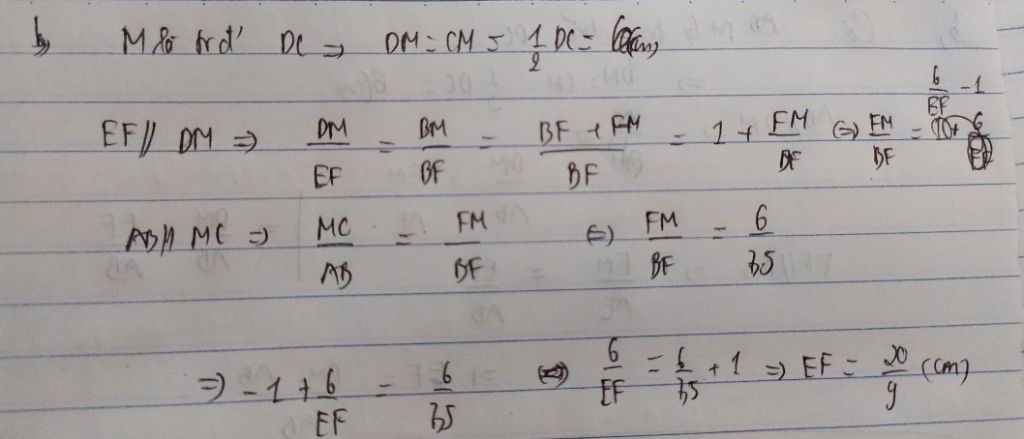 b, M là trđ' DC ⇒ DM = CM = 1/2 DC = 6(cm)
EF // DM ⇒ DM/EF = BM/BF = (BF + FM)/BF = 1 + FM/BF ⇔ FM/BF = 6/EF - 1
AB // MC ⇒ MC/AB = FM/BF ⇔ FM/BF = 6/7,5
⇒ -1 + 6/EF = 6/7,5 ⇔ 6/EF = 6/7,5 + 1 ⇒ EF = /9 (cm)